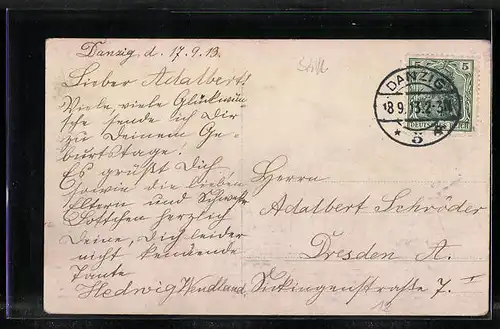 Danzig d. 17.9.13.
Lieber Adalbert!
Viele, viele Glückwün-
sche sende ich Dir
zu Deinem Ge-
burtstage!
Es grüßt Dich,
sowie die lieben
Eltern und Schwest.
Lottchen herzlich
Deine, Dich leider
nicht kennende
Tante
Hedwig Wendland.
5
DANZIG
18.9.13.2-3N
* 5 a
DEUTSCHES REICH
Herrn
Adalbert Schröder
Dresden A.
Sickingenstraße 7. I